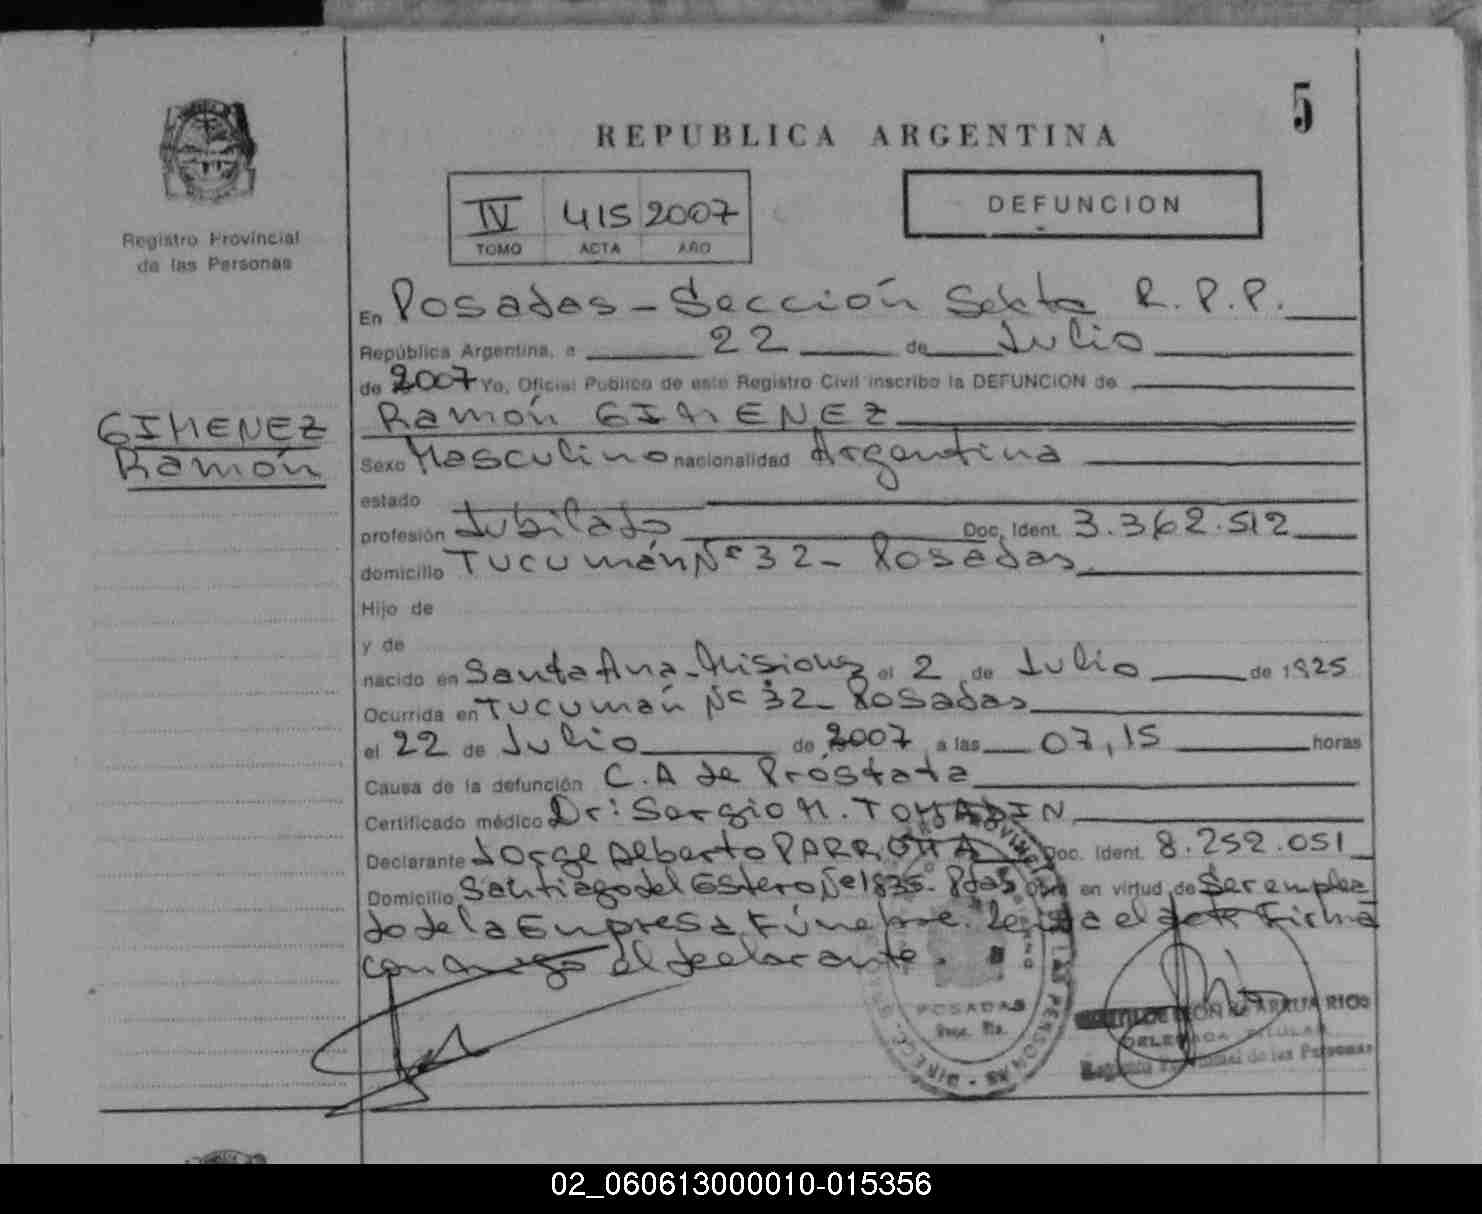 5
REPUBLICA ARGENTINA
IV 415 2007
TOMO ACTA AÑO
DEFUNCION
Registro Provincial
de las Personas
GIMENEZ
Ramón
En Posadas - Sección Sexta R.P.P.
República Argentina, a 22 de Julio
de 2007 Yo, Oficial Público de este Registro Civil inscribo la DEFUNCION de
Ramón GIMENEZ
Sexo Masculino nacionalidad Argentina
estado
profesión Jubilado Doc. Ident. 3.362.512
domicilio Tucumán Nº 32 - Posadas
Hijo de
y de
nacido en Santa Ana - Misiones el 2 de Julio de 1925
Ocurrida en Tucumán Nº 32 - Posadas
el 22 de Julio de 2007 a las 07,15 horas
Causa de la defunción C.A de Próstata
Certificado médico Dr: Sergio M. TOMADIN
Declarante Jorge Alberto PARROTTA Doc. Ident. 8.252.051
Domicilio Santiago del Estero Nº 1835 - Pdas Obra en virtud de Ser emplea
do de la Empresa Fúnebre. Leída el acta Firma
conmigo el declarante.
POSADAS
DELEGADA TITULAR
Registro Provincial de las Personas
02_060613000010-015356